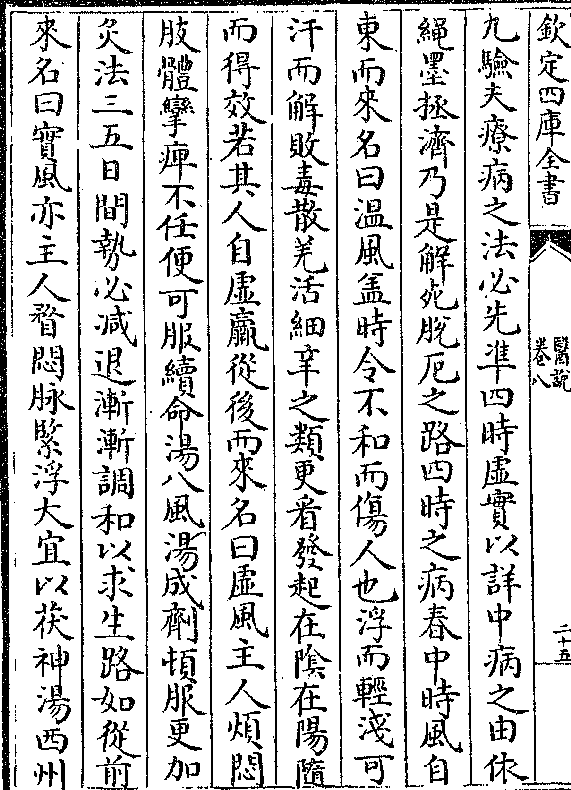 欽定四庫全書
醫說
卷八
二十五
九驗夫療病之法必先準四時虛實以詳中病之由依
繩墨拯濟乃是解死脫厄之路四時之病春中時風自
東而來名曰溫風盖時令不和而傷人也浮而輕淺可
汗而解敗毒散羌活細辛之類更看發起在陰在陽隨
而得效若其人自虛羸從後而來名曰虛風主人煩悶
肢體攣痺不任便可服續命湯八風湯成劑頓服更加
灸法三五日間𫝑必减退漸漸調和以求生路如從前
來名曰實風亦主人瞀悶脉緊浮大宜以茯神湯西州